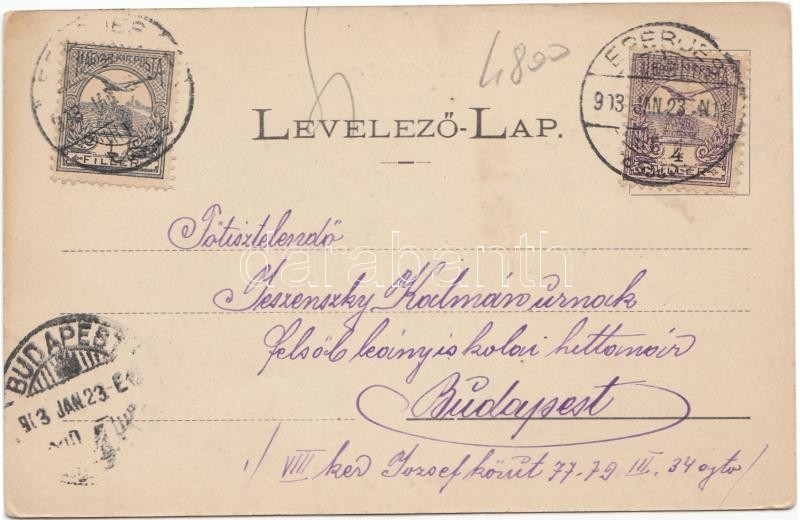 4800
MAGYAR KIR. POSTA
1
FILLÉR
EPERJES
903 JAN. 23. N
4
FILLÉR
LEVELEZŐ-LAP.
Főtisztelendő
Jeszenszky Kálmán úrnak
felsőb leányiskolai hittanár
Budapest
VIII ker József körút 77-79 III. 34 ajto
BUDAPEST
903 JAN. 23. E
darabanth